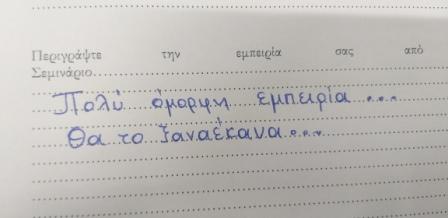 Περιγράψτε την εμπειρία σας από
Σεμινάριο
Πολύ όμορφη εμπειρία ....
Θα το ξαναέκανα ....